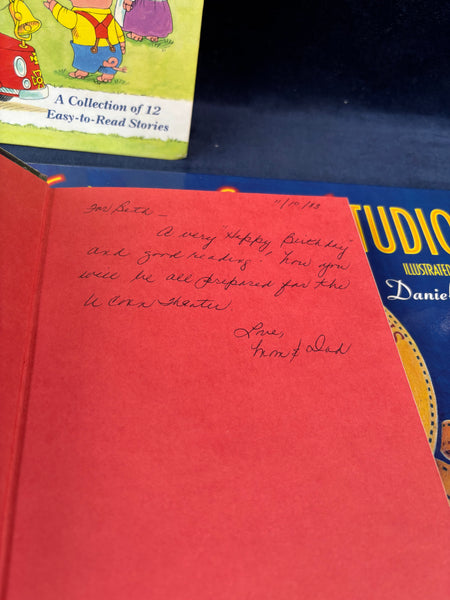 A Collection of 12
Easy-to-Read Stories
TUDIO
ILLUSTRATED
Daniel
11/10/83
For Beth –
A very "Happy Birthday"
and good reading! Now you
will be all prepared for the
U Conn Theater.
Love,
Mom & Dad